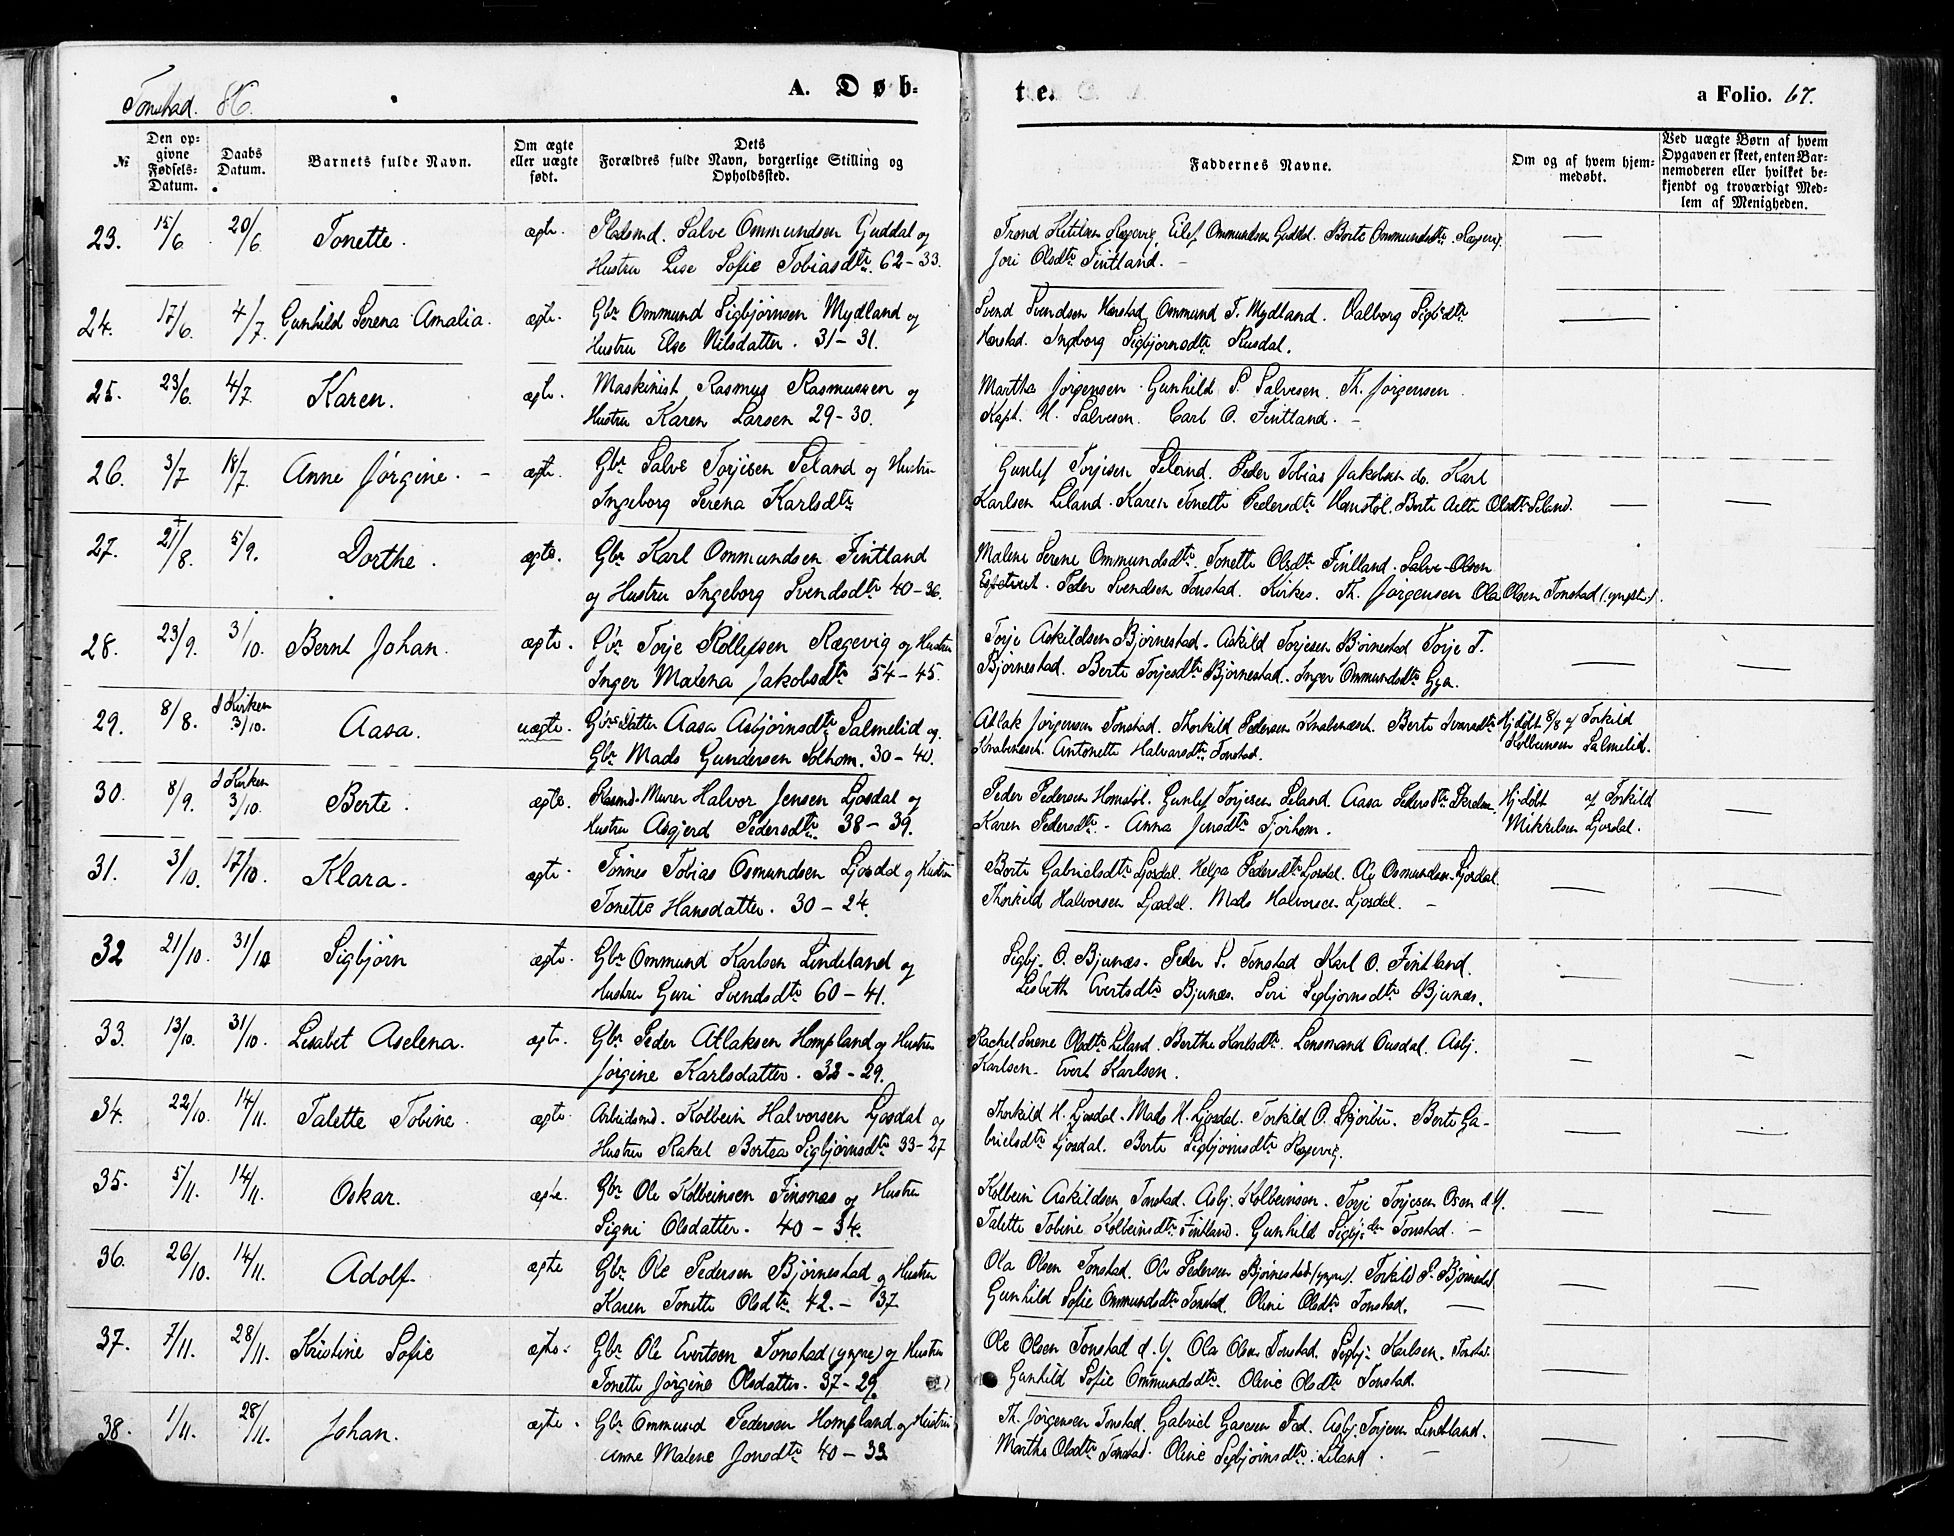 Tonstad. 86.
A. Døb-
te.
a Folio. 67.
№
Den opgivne Fødsels-Datum.
Daabs Datum.
Barnets fulde Navn.
Om ægte eller uægte født.
Dets Forældres fulde Navn, borgerlige Stilling og Opholdssted.
Faddernes Navne.
Om og af hvem hjemmedøbt.
Ved uægte Børn af hvem Opgaven er skeet, enten Barnemoderen eller hvilket bekjendt og troværdigt Medlem af Menigheden.
23. 15/6 20/6 Tonette. ægte. Pladsmd. Salve Ommundsen Guddal og
Hustru Lise Sofie Tobiasdtr. 62-33.
Trond Ketilsen Røgevig, Eilef Ommundsen Guddal. Berte Ommundsdtr.
Jori Olsdtr Fintland. —
24. 17/6 4/7. Gunhild Serena Amalia. ægte. Gbr. Ommund Sigbjørnsen Mydland og
Hustru Else Nilsdatter. 31-31.
Svend Svendsen Ommund T. Mydland. Valborg
Ingborg Sigbjørnsdtr Rusdal.
25. 23/6. 4/7. Karen. ægte. Maskinist Rasmus Rasmussen og
Hustru Karen Larsen 29-30.
Martha Jørgensen. Gunhild S. Salvesen. Th. Jørgensen.
Kapt. H. Salvesen. Carl O. Fintland. —
26. 3/7 18/7. Anne Jørgine. — ægte. Gbr. Salve Torjisen Seland og Hustru
Ingeborg Serena Karlsdtr
Gunlef Torjisen Seland. Peder Tobias Jakobsen do. Karl
Karlsen Liland. Karen Tonette Pedersdtr Homstøl. Berte Aelte Olsdtr Seland.
27. 21/8. 5/9. Dorthe. ægte. Gbr Karl Ommundsen Fintland
og Hustru Ingeborg Svendsdtr 40-36.
Malene Serene Ommundsdtr. Tonette Olsdtr Fintland. Salve Olsen
Peder Svendsen Tonstad. Kirkes. Th. Jørgensen Ola Olsen Tonstad (yngste).
28. 23/9. 3/10. Bernt Johan. ægte. Gbr Torje Rollefsen Røgevig og Hustru
Inger Malena Jakobsdtr 54-45.
Torje Askildsen Bjørnestad. Askild Torjesen Bjørnestad Torje T.
Bjørnestad. Berte Torjesdtr Bjørnestad. Inger Ommundsdtr Gya.
29. 8/8. I Kirken 3/10. Aasa. uægte. Gbrs Datter Aasa Asbjørnsdtr Salmelid og
Gbr. Mads Gundersen Solhom. 30-40.
Atlak Jørgensen Tonstad. Thorkild Pedersen Knabenæsch. Berte Ivarsdtr
Knabenæsch. Antonette Halvarsdtr Tonstad.
Hj.døbt 8/8 af Torkild
Kolbeinsen Salmelid.
30. 8/9. I Kirken 3/10. Berte. ægte. Murer Halvor Jensen Ljosdal og
Hustru Asgjerd Pedersdtr. 38-39.
Peder Pedersen Homstøl. Gunlef Torjesen Seland. Aasa Pedersdtr
Karen Pedersdtr. Anna Jensdtr Tjorhom.
Hj.døbt af Torkild
Mikkelsen Ljosdal.
31. 3/10. 17/10. Klara. ægte. Tønnes Tobias Osmundsen Ljosdal og Hustru
Tonette Hansdatter. 30-24.
Berte Gabrielsdtr Ljosdal. Helga Pedersdtr Ljosdal. Ole Osmundsen Ljosdal.
Thorkild Halvorsen Ljosdal. Mads Halvorsen Ljosdal. —
32 21/10. 31/10 Sigbjørn ægte. Gbr Ommund Karlsen Lindeland og
Hustru Guri Svendsdtr 60-41.
Sigbj. O. Bjunes. Peder S. Tonstad Karl O. Fintland.
Lisbeth Evertsdtr Bjunes. Siri Sigbjørnsdtr Bjunes.
33. 13/10. 31/10. Lisabet Aselena. ægte. Gbr Peder Atlaksen Hompland og Hustru
Jørgine Karlsdatter. 32-29.
Rachel Serene Olsdtr Liland. Berthe Karlsdtr. Lensmand Ousdal. Asbj.
Karlsen. Evert Karlsen.
34. 22/10. 14/11. Talette Tobine. ægte. Arbeidsmd. Kolbein Halvorsen Ljosdal og
Hustru Rakel Bertea Sigbjørnsdtr 33-27
Thorkild H. Ljosdal. Mads H. Ljosdal. Torkild O. Skjerbu. Berte Ga-
brielsdtr Ljosdal. Berte Sigbjørnsdtr Røgevig.
35. 5/11. 14/11. Oskar. ægte. Gbr. Ole Kolbeinsen Finsnes og Hustru
Signi Olsdatter. 40-34.
Kolbein Askildsen Tonstad. Asbj. Kolbeinsen. Torje Torjesen Osen d.Y.
Talette Tobine Kolbeinsdtr Fintland. Gunhild Sigbj.dtr Tonstad. —
36. 26/10. 14/11. Adolf. ægte Gbr. Ole Pedersen Bjørnestad og Hustru
Karen Tonette Olsdtr 42.-37
Ola Olsen Tonstad. Ole Pedersen Bjørnestad (yngre). Torkild P. Bjørnestad
Gunhild Sofie Ommundsdtr Tonstad. Oline Olsdtr Tonstad.
37. 7/11. 28/11. Kristine Sofie ægte. Gbr Ole Evertsen Tonstad (yngre) og Hustru
Tonette Jørgine Olsdatter. 37-29.
Ole Olsen Tonstad d.Y. Ola Olsen Tonstad. Sigbj. Karlsen. Tonstad.
Gunhild Sofie Ommundsdtr. Oline Olsdtr Tonstad.
38. 1/11. 28/11. Johan. ægte. Gbr Ommund Pedersen Hompland og Hustru
Anne Malene Jonsdtr 40-33
Th. Jørgensen Tonstad. Gabriel Gasesen Fed. Asbj. Torjesen Lindland.
Martha Olsdtr Tonstad. Oline Sigbjørnsdtr Liland.